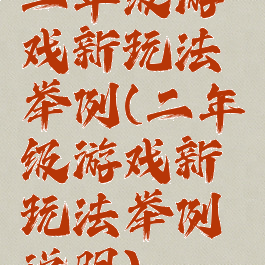 二年级游
戏新玩法
举例(二年
级游戏新
玩法举例
说明)